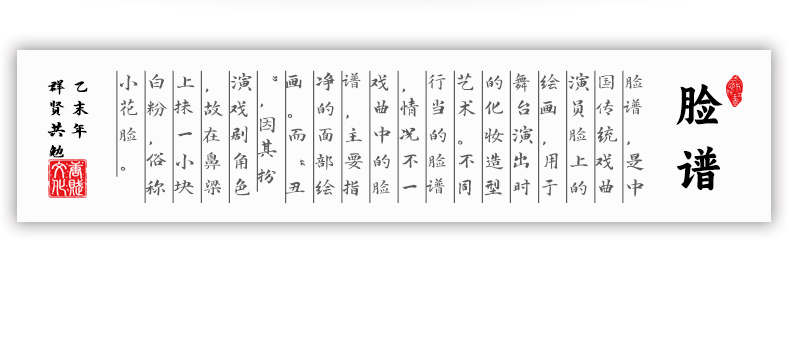 脸谱
脸谱，是中
国传统戏曲
演员脸上的
绘画，用于
舞台演出时
的化妆造型
艺术。不同
行当的脸谱
，情况不一
戏曲中的脸
谱，主要指
净的面部绘
画。而“丑
”，因其扮
演戏剧角色
，故在鼻梁
上抹一小块
白粉，俗称
小花脸。
乙未年
群贤共勉
文化